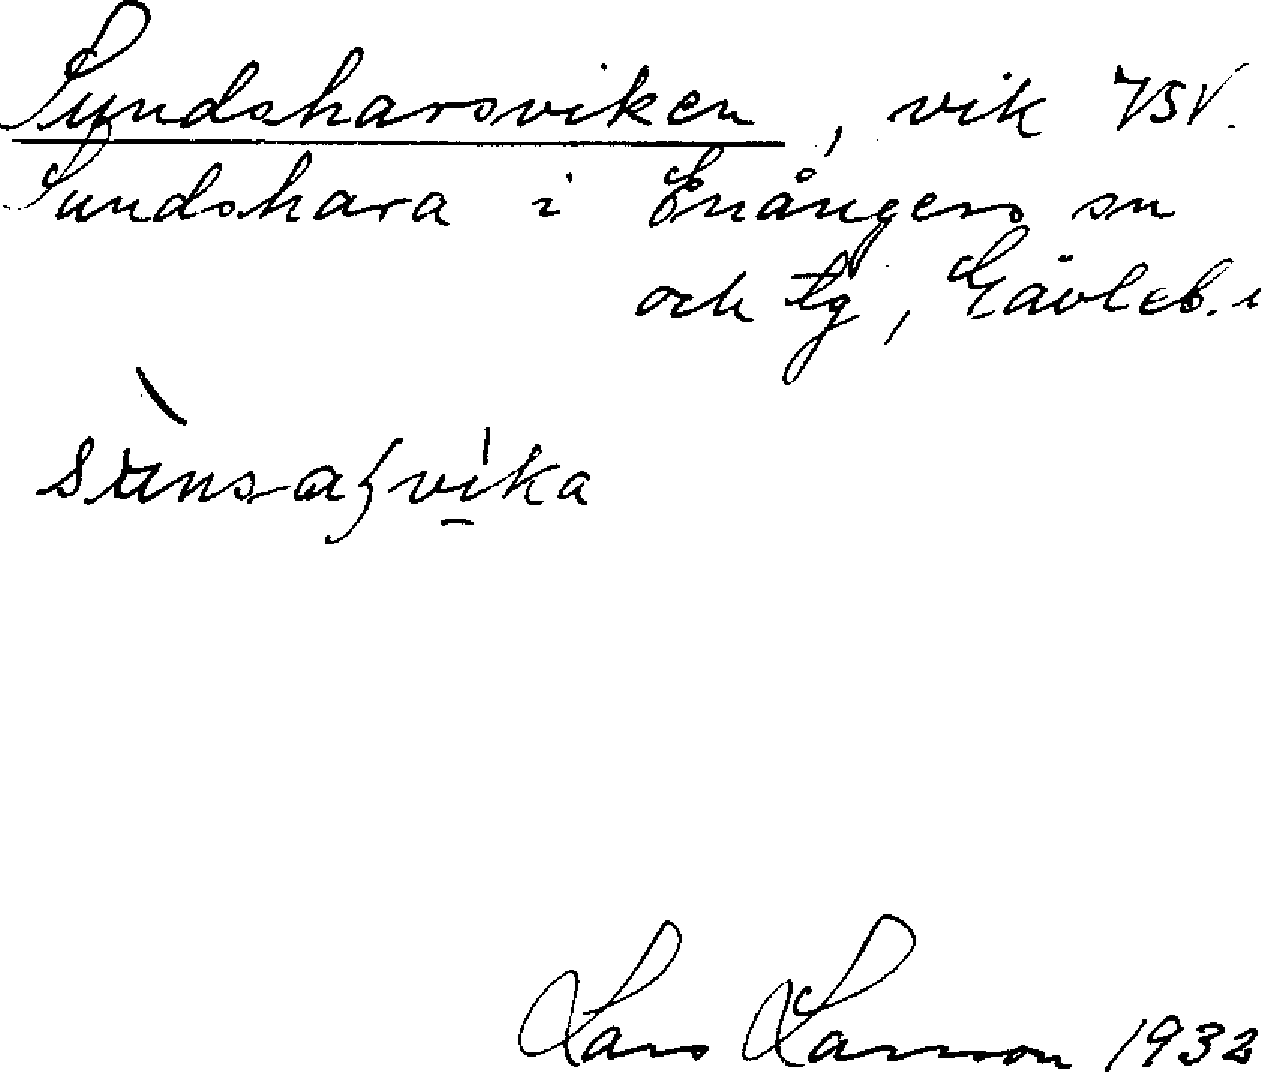 Sundsharsviken, vik VSV.
Sundshara i Enångers sn
och tg, Gävleb. l
Lars Larsson 1932